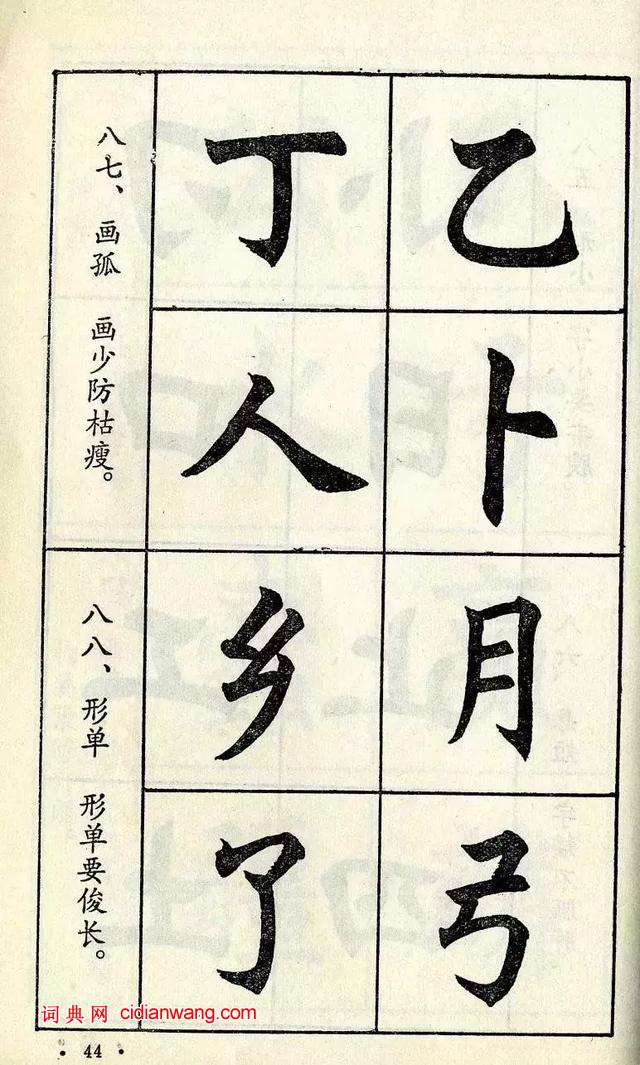 乙卜
丁人
八七、画孤 画少防枯瘦。
月弓
乡了
八八、形单 形单要俊长。
词典网 cidianwang.com
·44·